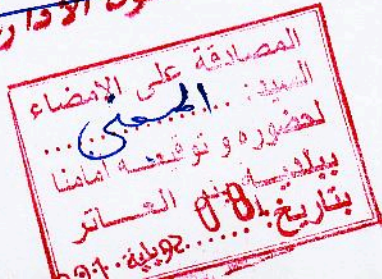 المصادقة على الامضاء
السيد: المعني
لحضوره و توقيعه أمامنا
ببلدية بئر العاتر
بتاريخ 08 جويلية